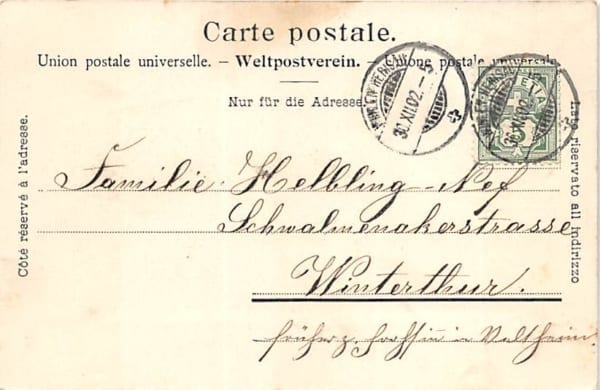 Carte postale.
Union postale universelle. — Weltpostverein. — Unione postale universale
Nur für die Adresse
30.XII.02. - 5
30.XII.02
Côté réservé à l'adresse.
Lato riservato all indirizzo
Familie Helbling-Nef
Schwalmenakerstrasse
Winterthur.
früher z. in Veltheim